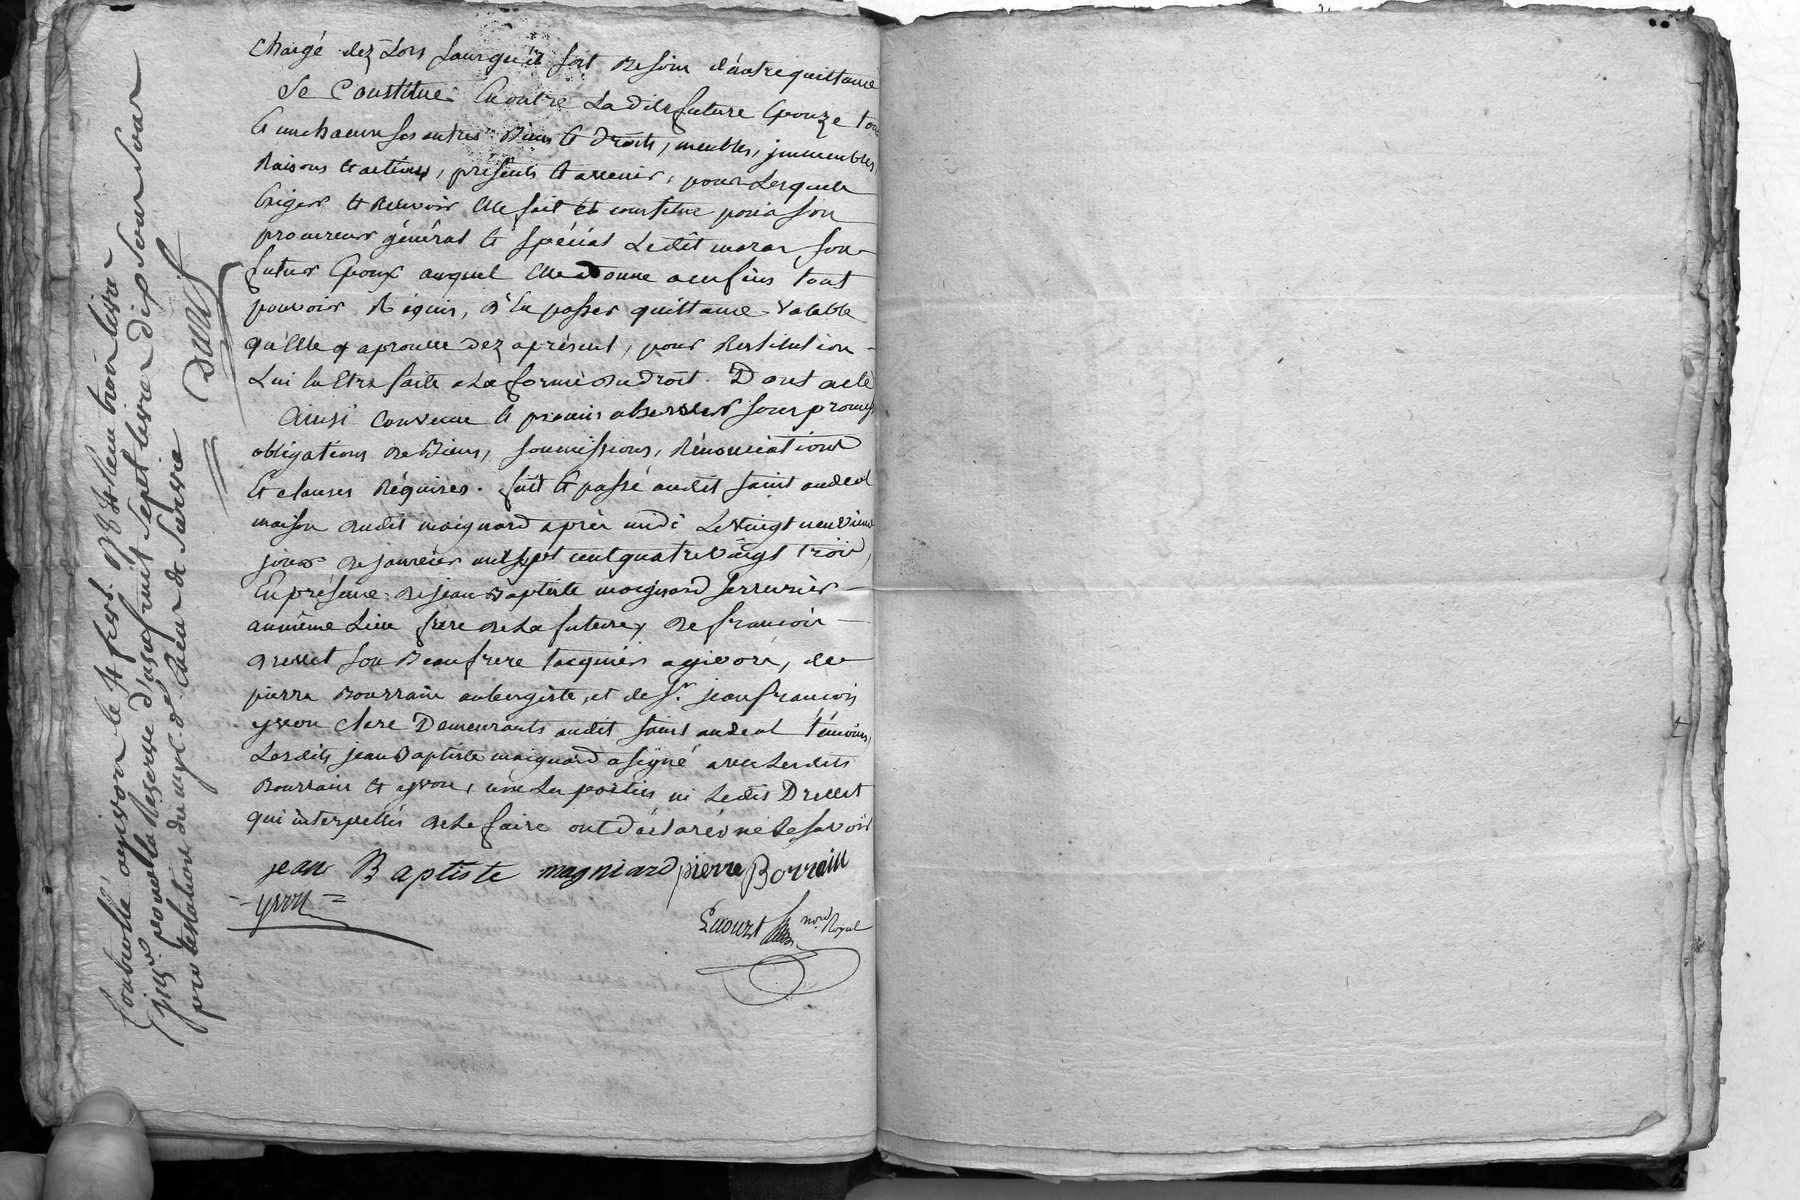 chargé dez Lors sans qu'il soit Besoin d'autre quittance
Se Constitue Enoutre Ladite future Epouze tous
Et un chacuns ses autres Biens et Droits, meubles, immeubles,
Raisons et actions, présents et avenir, pour Lesquels
Exiger et Recevoir Elle fait et constitue pour son
procureur général et spécial Ledit maron son
futur Epoux auquel Elle donne aux fins tout
pouvoir Réquis, d'En passer quittance valable
qu'Elle aprouve dez aprésent, pour Restitution
Lui En Etre faite a La forme du droit. Dont acte
Ainsi Convenu et promis observer sous promesses
obligations de Biens, soumissions, Rénonciations
et clauses Réquises. fait et passé audit saint andeol
maison dudit maignard après midi Le vingt neuvieme
jour de janvier mil sept cent quatre vingt trois,
En présence de jean Baptiste maignard serrurier
au même Lieu frere de La future, de françois
Drevet son Beaufrere a givors, de
pierre Bourrain aubergiste, et de Sr. jean françois
yvron clerc Demeurants audit saint andeol témoins,
Lesdits jean Baptiste maignard a signé avec Lesdits
Bourrain et yvron, non Les parties ni Ledit Drevet
qui interpellés de Le faire ont déclarés ne Le savoir
jean Baptiste magniard pierre Borrain
yvron
nore Royal
Controllé a givors le 4 fevr. 1784 Reçu trois livres
pour la Reserve d'usufruit sept livres dix sous sauf